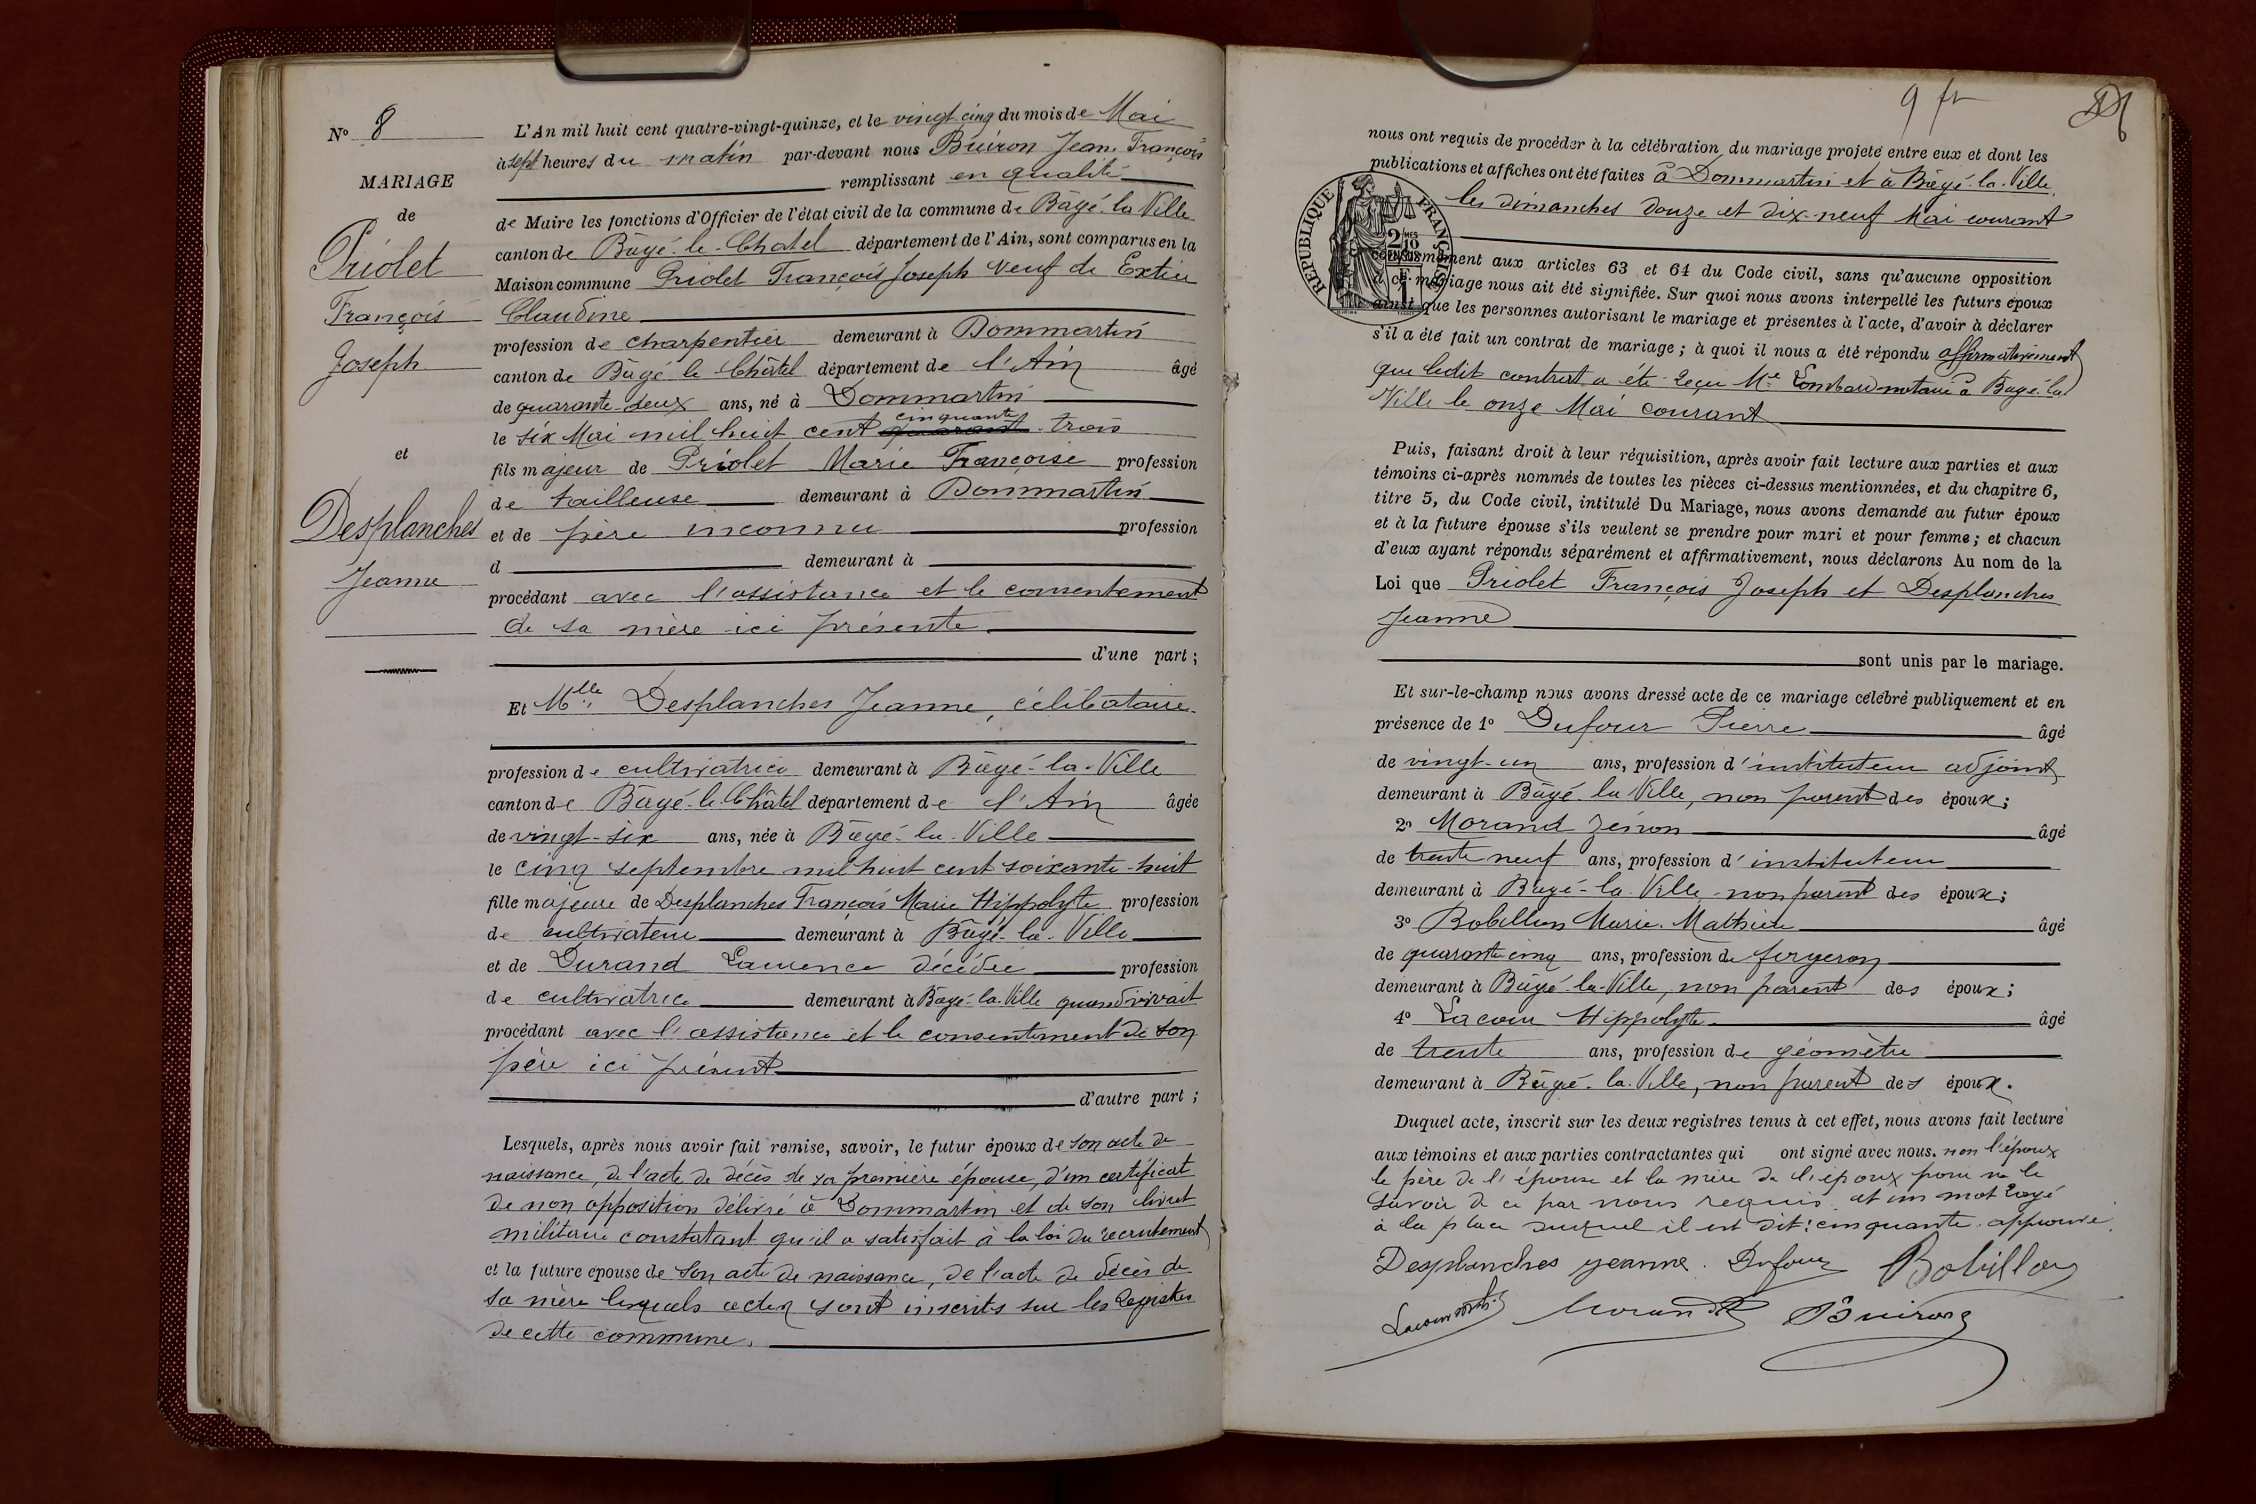 N° 8
MARIAGE
de
Priolet
François
Joseph
et
Desplanches
Jeanne
L'An mil huit cent quatre-vingt-quinze, et le vingt cinq du mois de Mai
à sept heures du matin par-devant nous Buiron Jean-François
remplissant en qualité
de Maire les fonctions d'Officier de l'état civil de la commune de Bâgé-la-Ville
canton de Bâgé-le-Châtel département de l'Ain, sont comparus en la
Maison commune Priolet François Joseph veuf de Extier
Claudine
profession de charpentier demeurant à Dommartin
canton de Bâgé le Châtel département de l'Ain âgé
de quarante-deux ans, né à Dommartin
cinquante
le six Mai mil huit cent quarante-trois
fils majeur de Priolet Marie Françoise profession
de tailleuse demeurant à Dommartin
et de père inconnu profession
d demeurant à
procédant avec l'assistance et le consentement
de sa mère ici présente
d'une part ;
Et Mlle Desplanches Jeanne, célibataire
profession de cultivatrice demeurant à Bâgé-la-Ville
canton de Bâgé-le-Châtel département de l'Ain âgée
de vingt-six ans, née à Bâgé-la-Ville
le cinq septembre mil huit cent soixante-huit
fille majeure de Desplanches François Marie Hippolyte profession
de cultivateur demeurant à Bâgé-la-Ville
et de Durand Laurence décédée profession
de cultivatrice demeurant à Bâgé-la-Ville quand vivait
procédant avec l'assistance et le consentement de son
père ici présent
d'autre part ;
Lesquels, après nous avoir fait remise, savoir, le futur époux de son acte de
naissance, de l'acte de décès de sa première épouse, d'un certificat
de non opposition délivré à Dommartin et de son livret
militaire constatant qu'il a satisfait à la loi du recrutement
et la future épouse de son acte de naissance, de l'acte de décès de
sa mère lesquels actes sont inscrits sur les Registres
de cette commune.
9 ft
nous ont requis de procéder à la célébration du mariage projeté entre eux et dont les
publications et affiches ont été faites à Dommartin et à Bâgé-la-Ville,
les dimanches douze et dix-neuf Mai courant
RÉPUBLIQUE FRANÇAISE
2/10
conformément aux articles 63 et 64 du Code civil, sans qu'aucune opposition
à ce mariage nous ait été signifiée. Sur quoi nous avons interpellé les futurs époux
ainsi que les personnes autorisant le mariage et présentes à l'acte, d'avoir à déclarer
s'il a été fait un contrat de mariage ; à quoi il nous a été répondu affirmativement
que ledit contrat a été reçu Me Lombard notaire à Bagé-la
Ville le onze Mai courant
Puis, faisant droit à leur réquisition, après avoir fait lecture aux parties et aux
témoins ci-après nommés de toutes les pièces ci-dessus mentionnées, et du chapitre 6,
titre 5, du Code civil, intitulé Du Mariage, nous avons demandé au futur époux
et à la future épouse s'ils veulent se prendre pour mari et pour femme ; et chacun
d'eux ayant répondu séparément et affirmativement, nous déclarons Au nom de la
Loi que Priolet François Joseph et Desplanches
Jeanne
sont unis par le mariage.
Et sur-le-champ nous avons dressé acte de ce mariage célébré publiquement et en
présence de 1° Dufour Pierre âgé
de vingt-un ans, profession d'instituteur adjoint
demeurant à Bâgé-la-Ville, non parent des époux ;
2° Morand Zénon âgé
de trente neuf ans, profession d'instituteur
demeurant à Bâgé-la-Ville, non parent des époux ;
3° Bobillon Marie-Mathieu âgé
de quarante cinq ans, profession de forgeron
demeurant à Bâgé-la-Ville, non parent des époux ;
4° Lacour Hippolyte âgé
de trente ans, profession de géomètre
demeurant à Bâgé-la-Ville, non parent des époux.
Duquel acte, inscrit sur les deux registres tenus à cet effet, nous avons fait lecture
aux témoins et aux parties contractantes qui ont signé avec nous. non l'époux
le père de l'épouse et la mère de l'époux pour ne le
savoir de ce par nous requis. et un mot rayé
à la place duquel il est dit : cinquante. approuvé.
Desplanches Jeanne. Dufour Bobillon
Lacour Morand Buiron